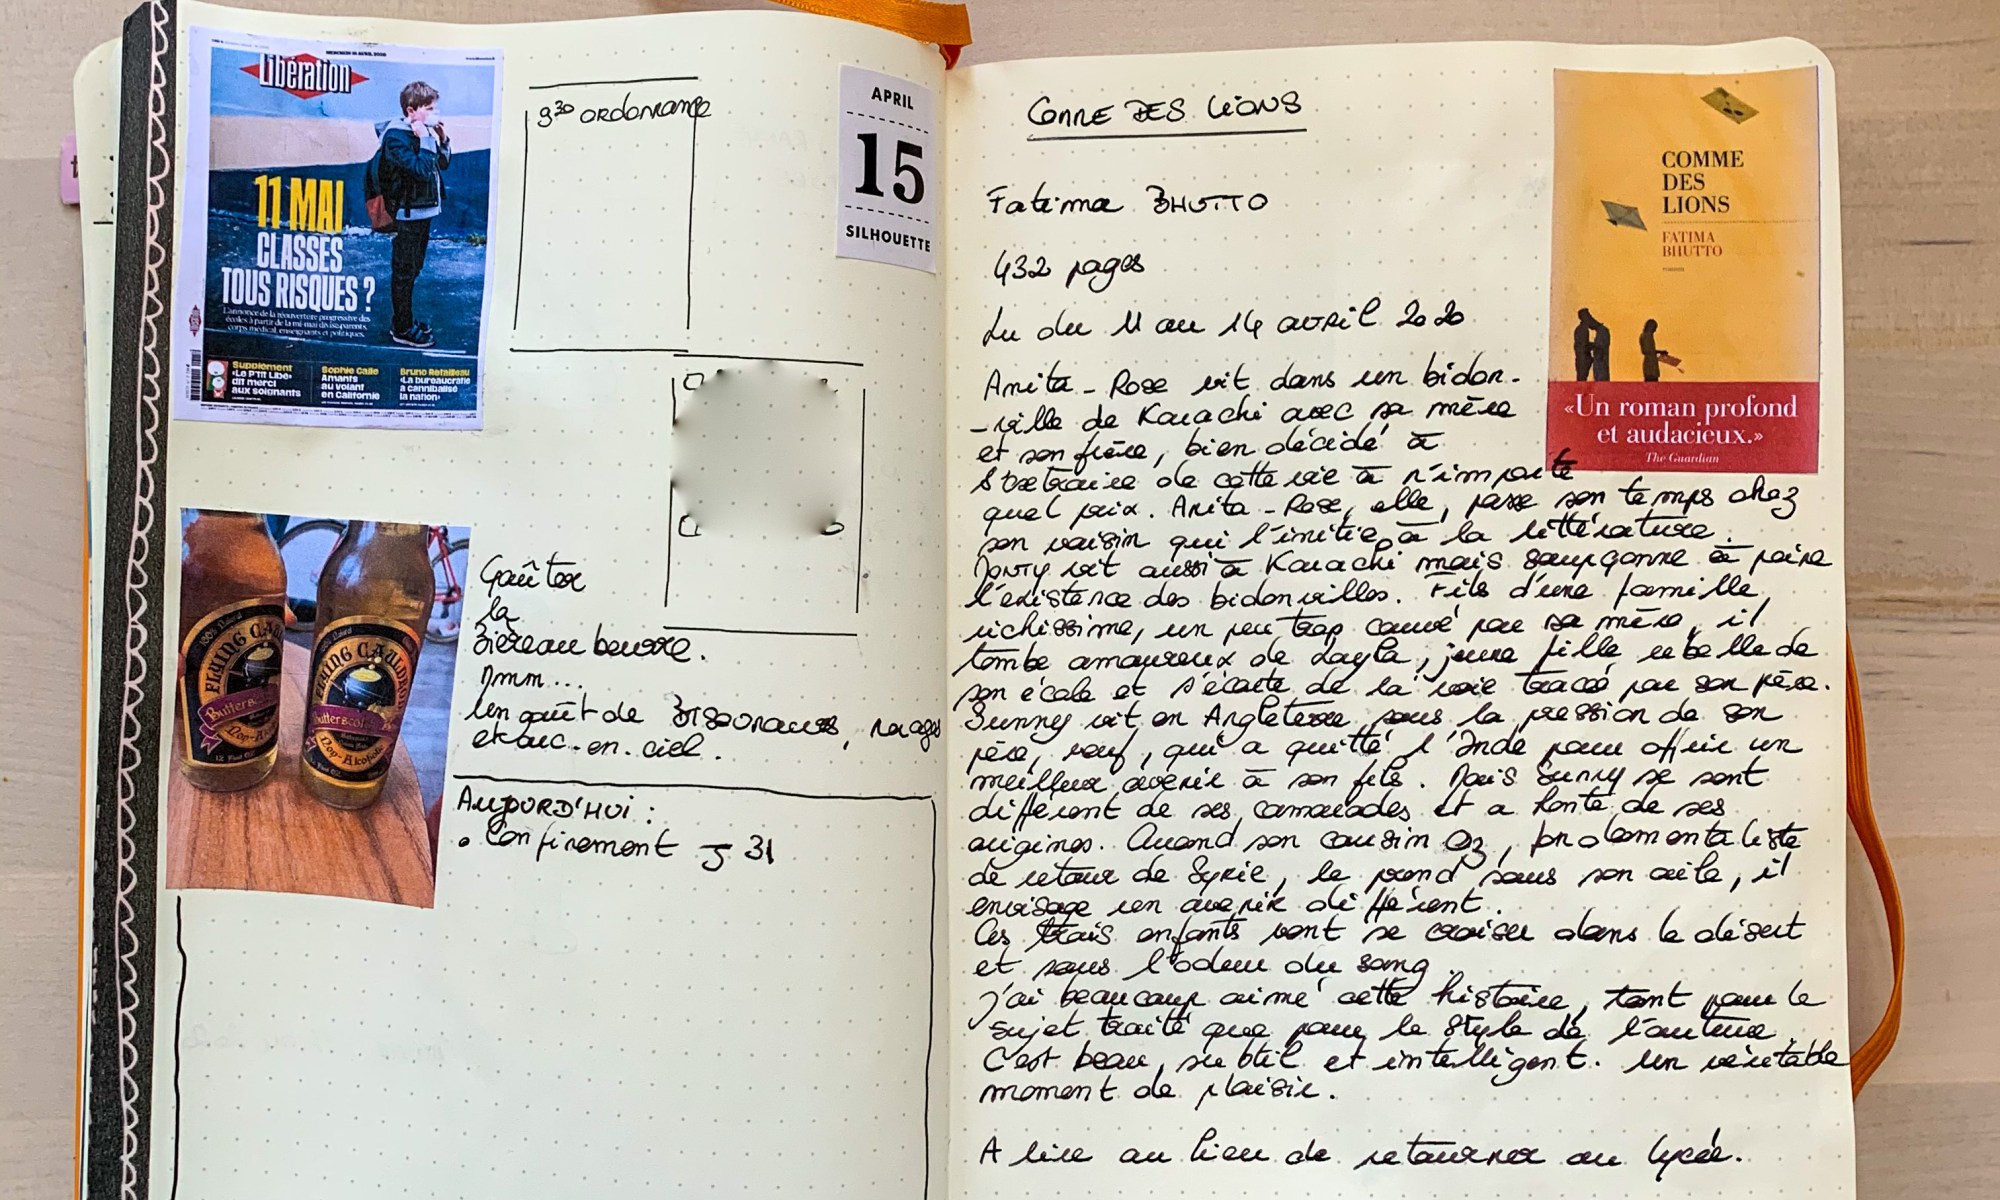 MERCREDI 15 AVRIL 2020
Libération
11 MAI
CLASSES
TOUS RISQUES ?
L'annonce de la réouverture progressive des
écoles à partir de la mi-mai divise parents,
corps médical, enseignants et politiques.
Supplément
«Le P'tit Libé»
dit merci
aux soignants
Sophie Calle
Amants
au volant
en Californie
Bruno Retailleau
«La bureaucratie
a cannibalisé
la nation»
9 30 ordonnance
APRIL
15
SILHOUETTE
FLYING CAULDRON
Butterscotch
Non-Alcoholic
Goûter
la
Bièreaubeurre.
Mmm...
Un goût de BISOUNOURS, nuages
et arc-en-ciel.
AUJOURD'HUI :
• Confinement J 31
COMME DES LIONS
Fatima BHUTTO
432 pages
Lu du 11 au 14 avril 2020
Anita-Rose vit dans un bidon-
-ville de Karachi avec sa mère
et son frère, bien décidé à
s'extraire de cette vie à n'importe
quel prix. Anita-Rose, elle, passe son temps chez
son voisin qui l'initie à la littérature.
Monty vit aussi à Karachi mais soupçonne à peine
l'existence des bidonvilles. Fils d'une famille
richissime, un peu trop couvé par sa mère, il
tombe amoureux de Layla, jeune fille rebelle de
son école et s'écarte de la voie tracée par son père.
Sunny vit en Angleterre sous la pression de son
père, veuf, qui a quitté l'Inde pour offrir un
meilleur avenir à son fils. Mais Sunny se sent
différent de ses camarades et a honte de ses
origines. Quand son cousin Oz, fondamentaliste
de retour de Syrie, le prend sous son aile, il
envisage un avenir différent.
Ces trois enfants vont se croiser dans le désert
et sous l'odeur du sang.
J'ai beaucoup aimé cette histoire, tant pour le
sujet traité que pour le style de l'auteure.
C'est beau, subtil et intelligent. Un véritable
moment de plaisir.
A lire au lieu de retourner au lycée.
COMME
DES
LIONS
FATIMA
BHUTTO
«Un roman profond
et audacieux.»
The Guardian